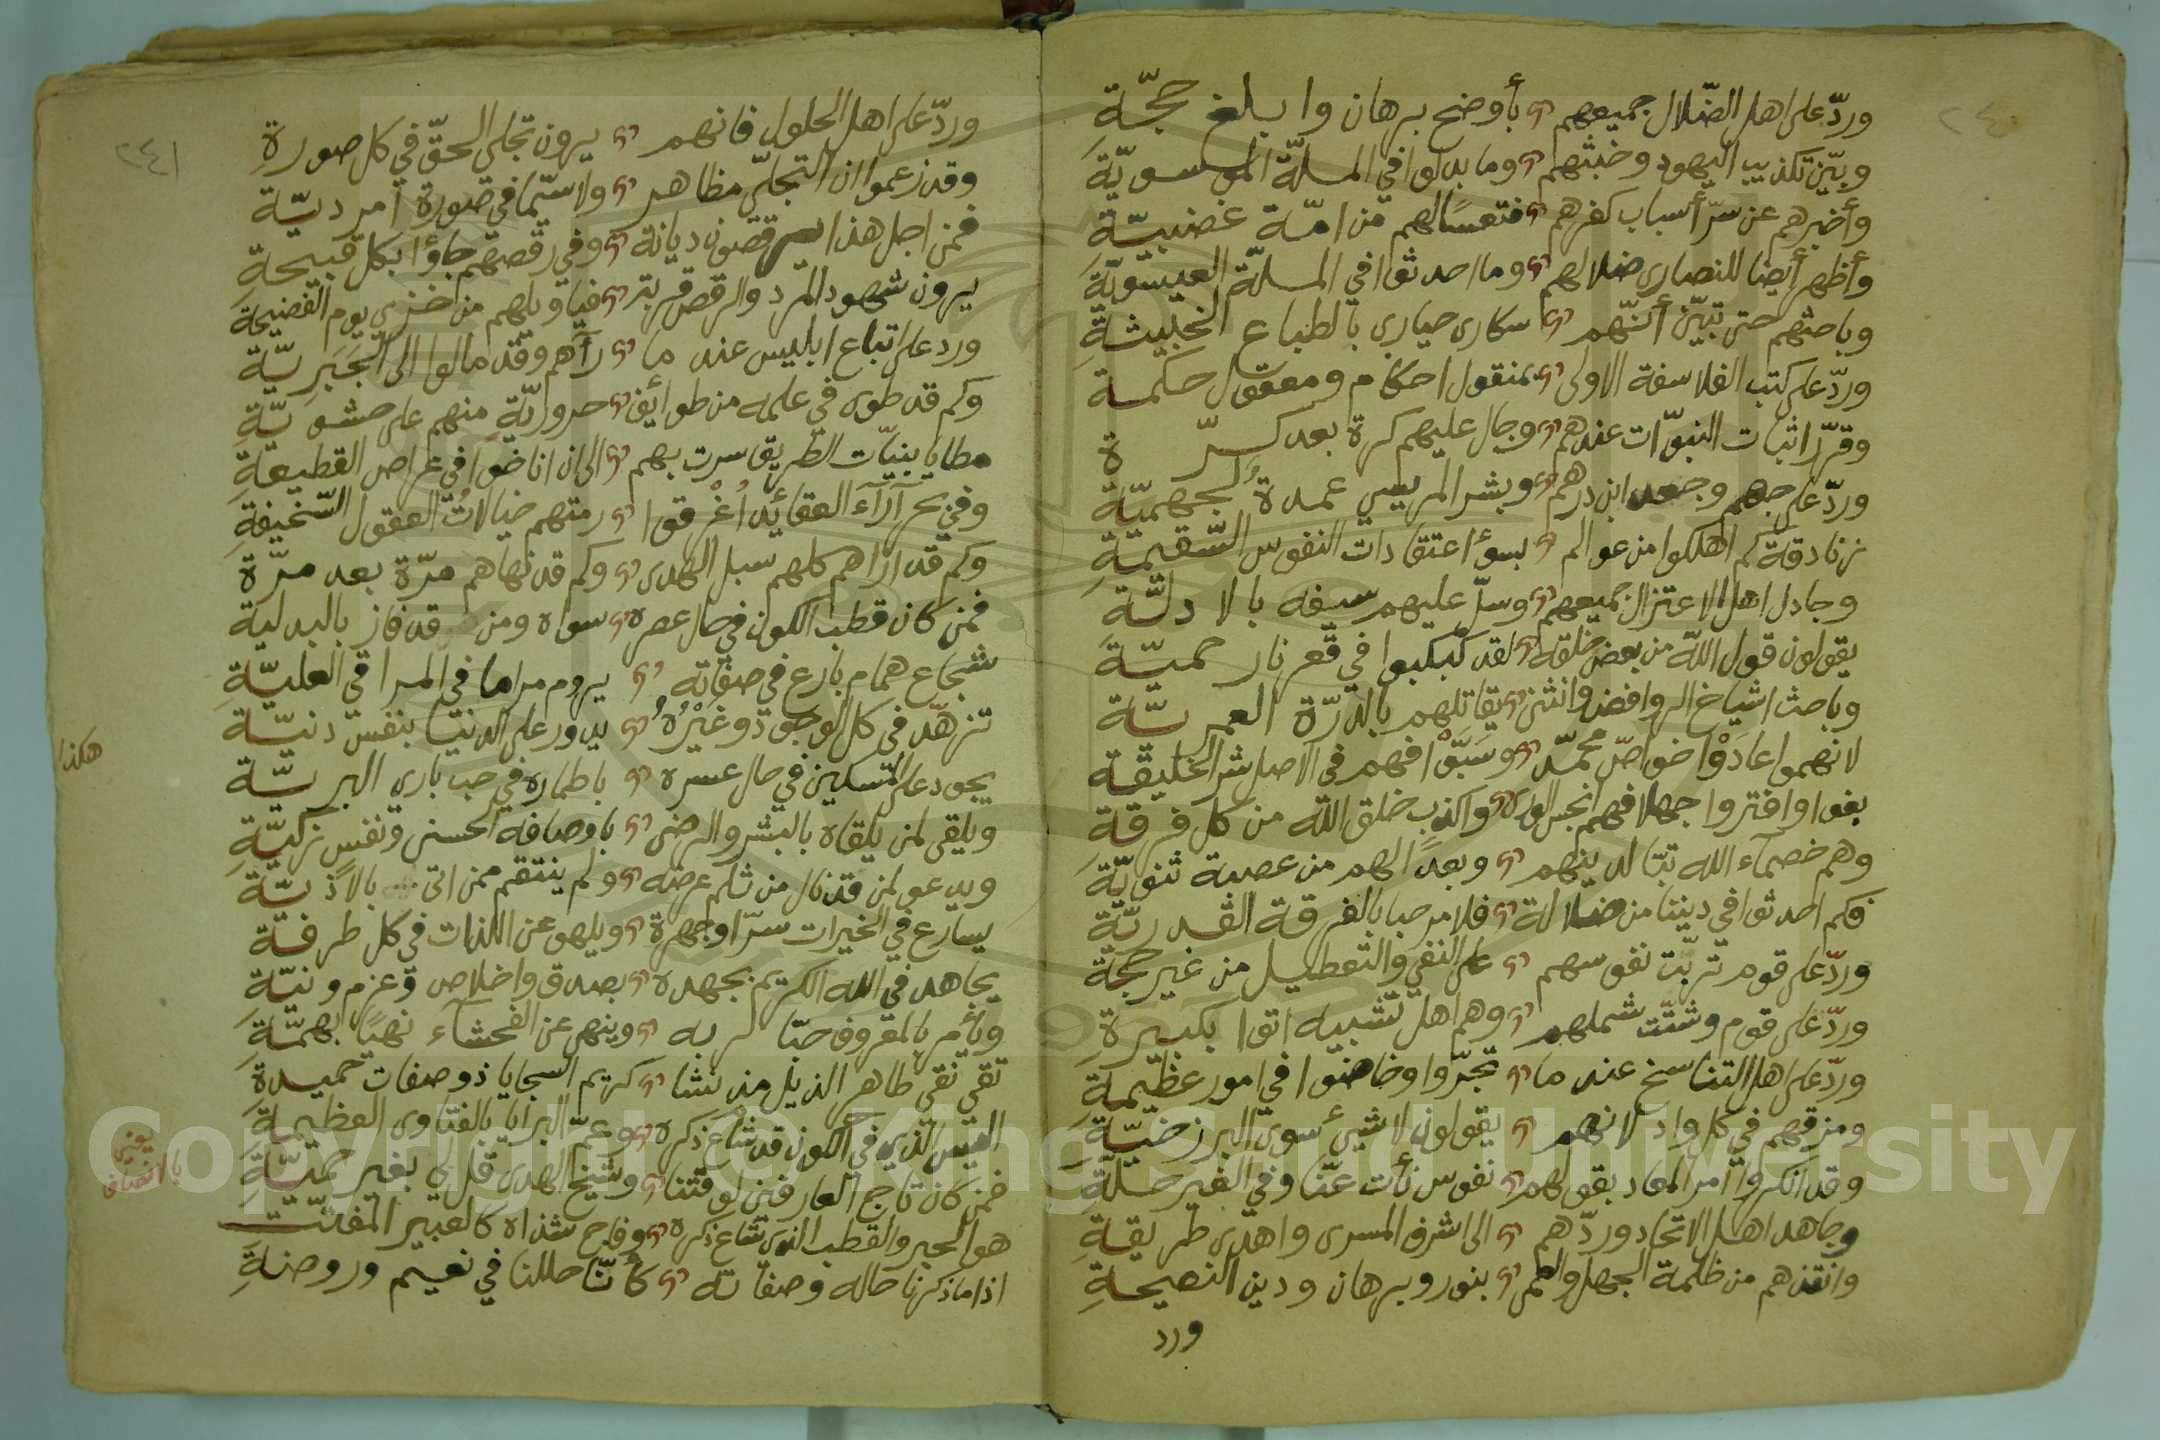 ٢٤٠
وردّ على اهل الضّلال جميعهم بأوضح برهان وابلغ حجّة
وبيّن تكذيب اليهود وخبثهم وما بدلوا في الملّة الموسويّة
وأخبرهم عن سرّ أسباب كفرهم فتعسًا لهم من امّة غضبيّة
وأظهر أيضا للنصارى ضلالهم وما احدثوا في الملّة العيسويّة
وباحثهم حتى تبيّن أنّهم سكارى حيارى بالطباع الخبيثة
وردّ على كتب الفلاسفة الاولى بمنقول احكام ومعقول حكمة
وقرّر اثبات النبوّات عندهم وجال عليهم كرة بعد كرّة
وردّ على جهم وجعد ابن درهم وبشر المريسي عمدة الجهميّة
زنادقة كم اهلكوا من عوالم بسوء اعتقادات النفوس السّقيمة
وجادل اهل الاعتزال جميعهم وسلّ عليهم سيفه بالادلّة
يقولون قول الله من بعض خلقه لقد كبكبوا في قعر نار حميّة
وباحث اشياخ الروافض وانثنى يقاتلهم بالدرّة العمريّة
لانهموا عادَوْا خواصّ محمّد وسَبَّوْا فهم في الاصل شر الخليقة
بغوا وافتروا جهلا فهم انجس الورى واكذب خلق الله من كل فرقة
وهم خصمآء الله تبّا لدينهم وبعدًا لهم من عصبة ثنويّة
فكم احدثوا في ديننا من ضلالة فلا مرحبا بالفرقة القدريّة
وردّ على قوم تربّت نفوسهم على النفي والتعطيل من غير حجّة
وردّ على قوم وشتّت شملهم وهم اهل تشبيه اتوا بكبيرة
وردّ على اهل التناسخ عند ما تجرّوا وخاضوا في امور عظيمة
ومزقهم في كل واد لانهم يقولون لا شيئ سوى البرزخيّة
وقد انكروا امر المعاد بقولهم نفوس نأت عنّا وفي الغير حلّة
وجاهد اهل الاتحاد وردّهم الى اشرف المسرى واهدى طريقة
وانقذهم من ظلمة الجهل والعمى بنور وبرهان ودين النصيحة
ورد
٢٤١
وردّ على اهل الحلول فانهم يرون تجلى الحقّ في كل صورة
وقد زعموا ان التجلّي مظاهر ولا سيّما في صورة أمرديّة
فمن اجل هذا يرقصون ديانة وفي رقصهم جاؤا بكل قبيحة
يرون شهود المرد والرقص قربة فيا ويلهم من خزي يوم الفضيحة
ورد على اتباع ابليس عند ما رآهم وقد مالوا الى الجَبَرِيّة
وكم قد طوى في علمه من طوائف حروريّة منهم على حشويّة
مطايا بنيّات الطريق سرت بهم الى ان اناخوا في عراص القطيعة
وفي بحر آرآء العقائد اُغْرِقوا رمتهم خيالاتُ العقول السّخيفة
وكم قد اراهم كلهم سبل الهدى وكم قد نهاهم مرّة بعد مرّة
فمن كان قطب الكون في حال عصره سواه ومن قد فاز بالبدلية
شجاع همام بارع في صفاته يروم مراما في المراقي العليّة
تزهّد في كل الوجود وغَيْرُهُ يدور على الدنيا بنفس دنيّة
يجود على المسكين في حال عسره باطماره في حب باري البريّة
ويلقى لمن يلقاه بالبشر والرضى باوصافه الحسنى ونفس زكيّة
ويدعو لمن قد نال من ثلم عرضه ولم ينتقم ممن اتى بالاذيّة
يسارع في الخيرات سرّا وجهرة ويلهو عن اللذات في كل طرفة
يجاهد في الله الكريم بجهده بصدق واخلاص وعزم ونيّة
ويأمر بالمعروف حبّا لربه وينهى عن الفحشآء نهيًا بهمّة
تقي نقي طاهر الذيل مذ نشا كريم السجايا ذو صفات حميدة
اليس الذي في الكون قد شاع ذكره وعمّ البرايا بالفتاوى العظيمة
فمن كان تاج العارفين لوقتنا وشيخ الهدى قل لي بغير حميّة
هو الحبر والقطب الذي شاع ذكره وفاح شذاه كالعبير المفتّت
اذا ما ذكرنا حاله وصفاته كأنّا حللنا في نعيم وروضة
هكذا
يعني
بالانصاف
Copyright © King Saud University